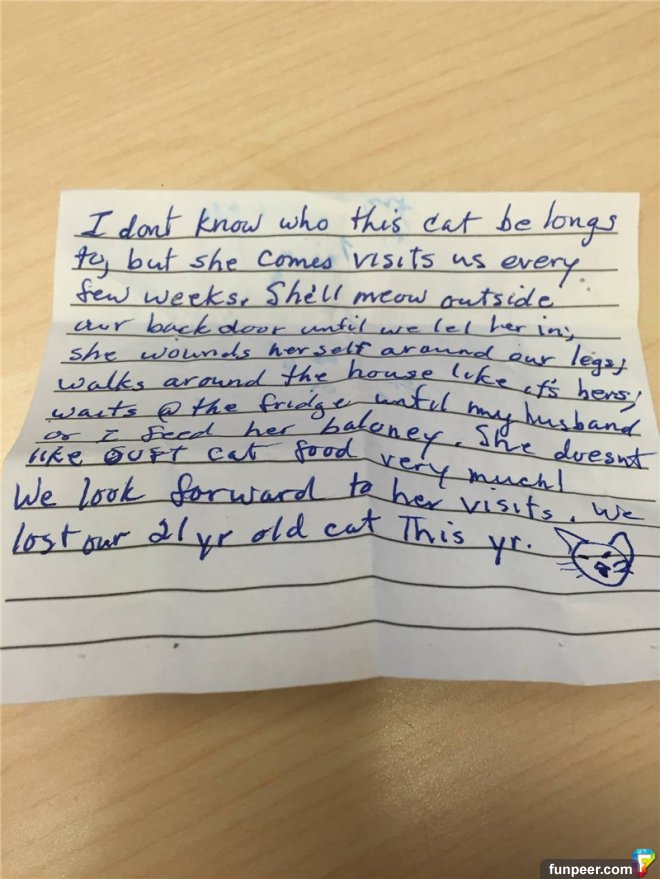 I dont know who this cat belongs
to, but she comes visits us every
few weeks. She'll meow outside
our back door until we let her in;
she wounds herself around our legs;
walks around the house like it's hers;
waits @ the fridge until my husband
or I feed her baloney. She doesnt
like cat food very much!
We look forward to her visits. We
lost our 21 yr old cat This yr.
funpeer.com